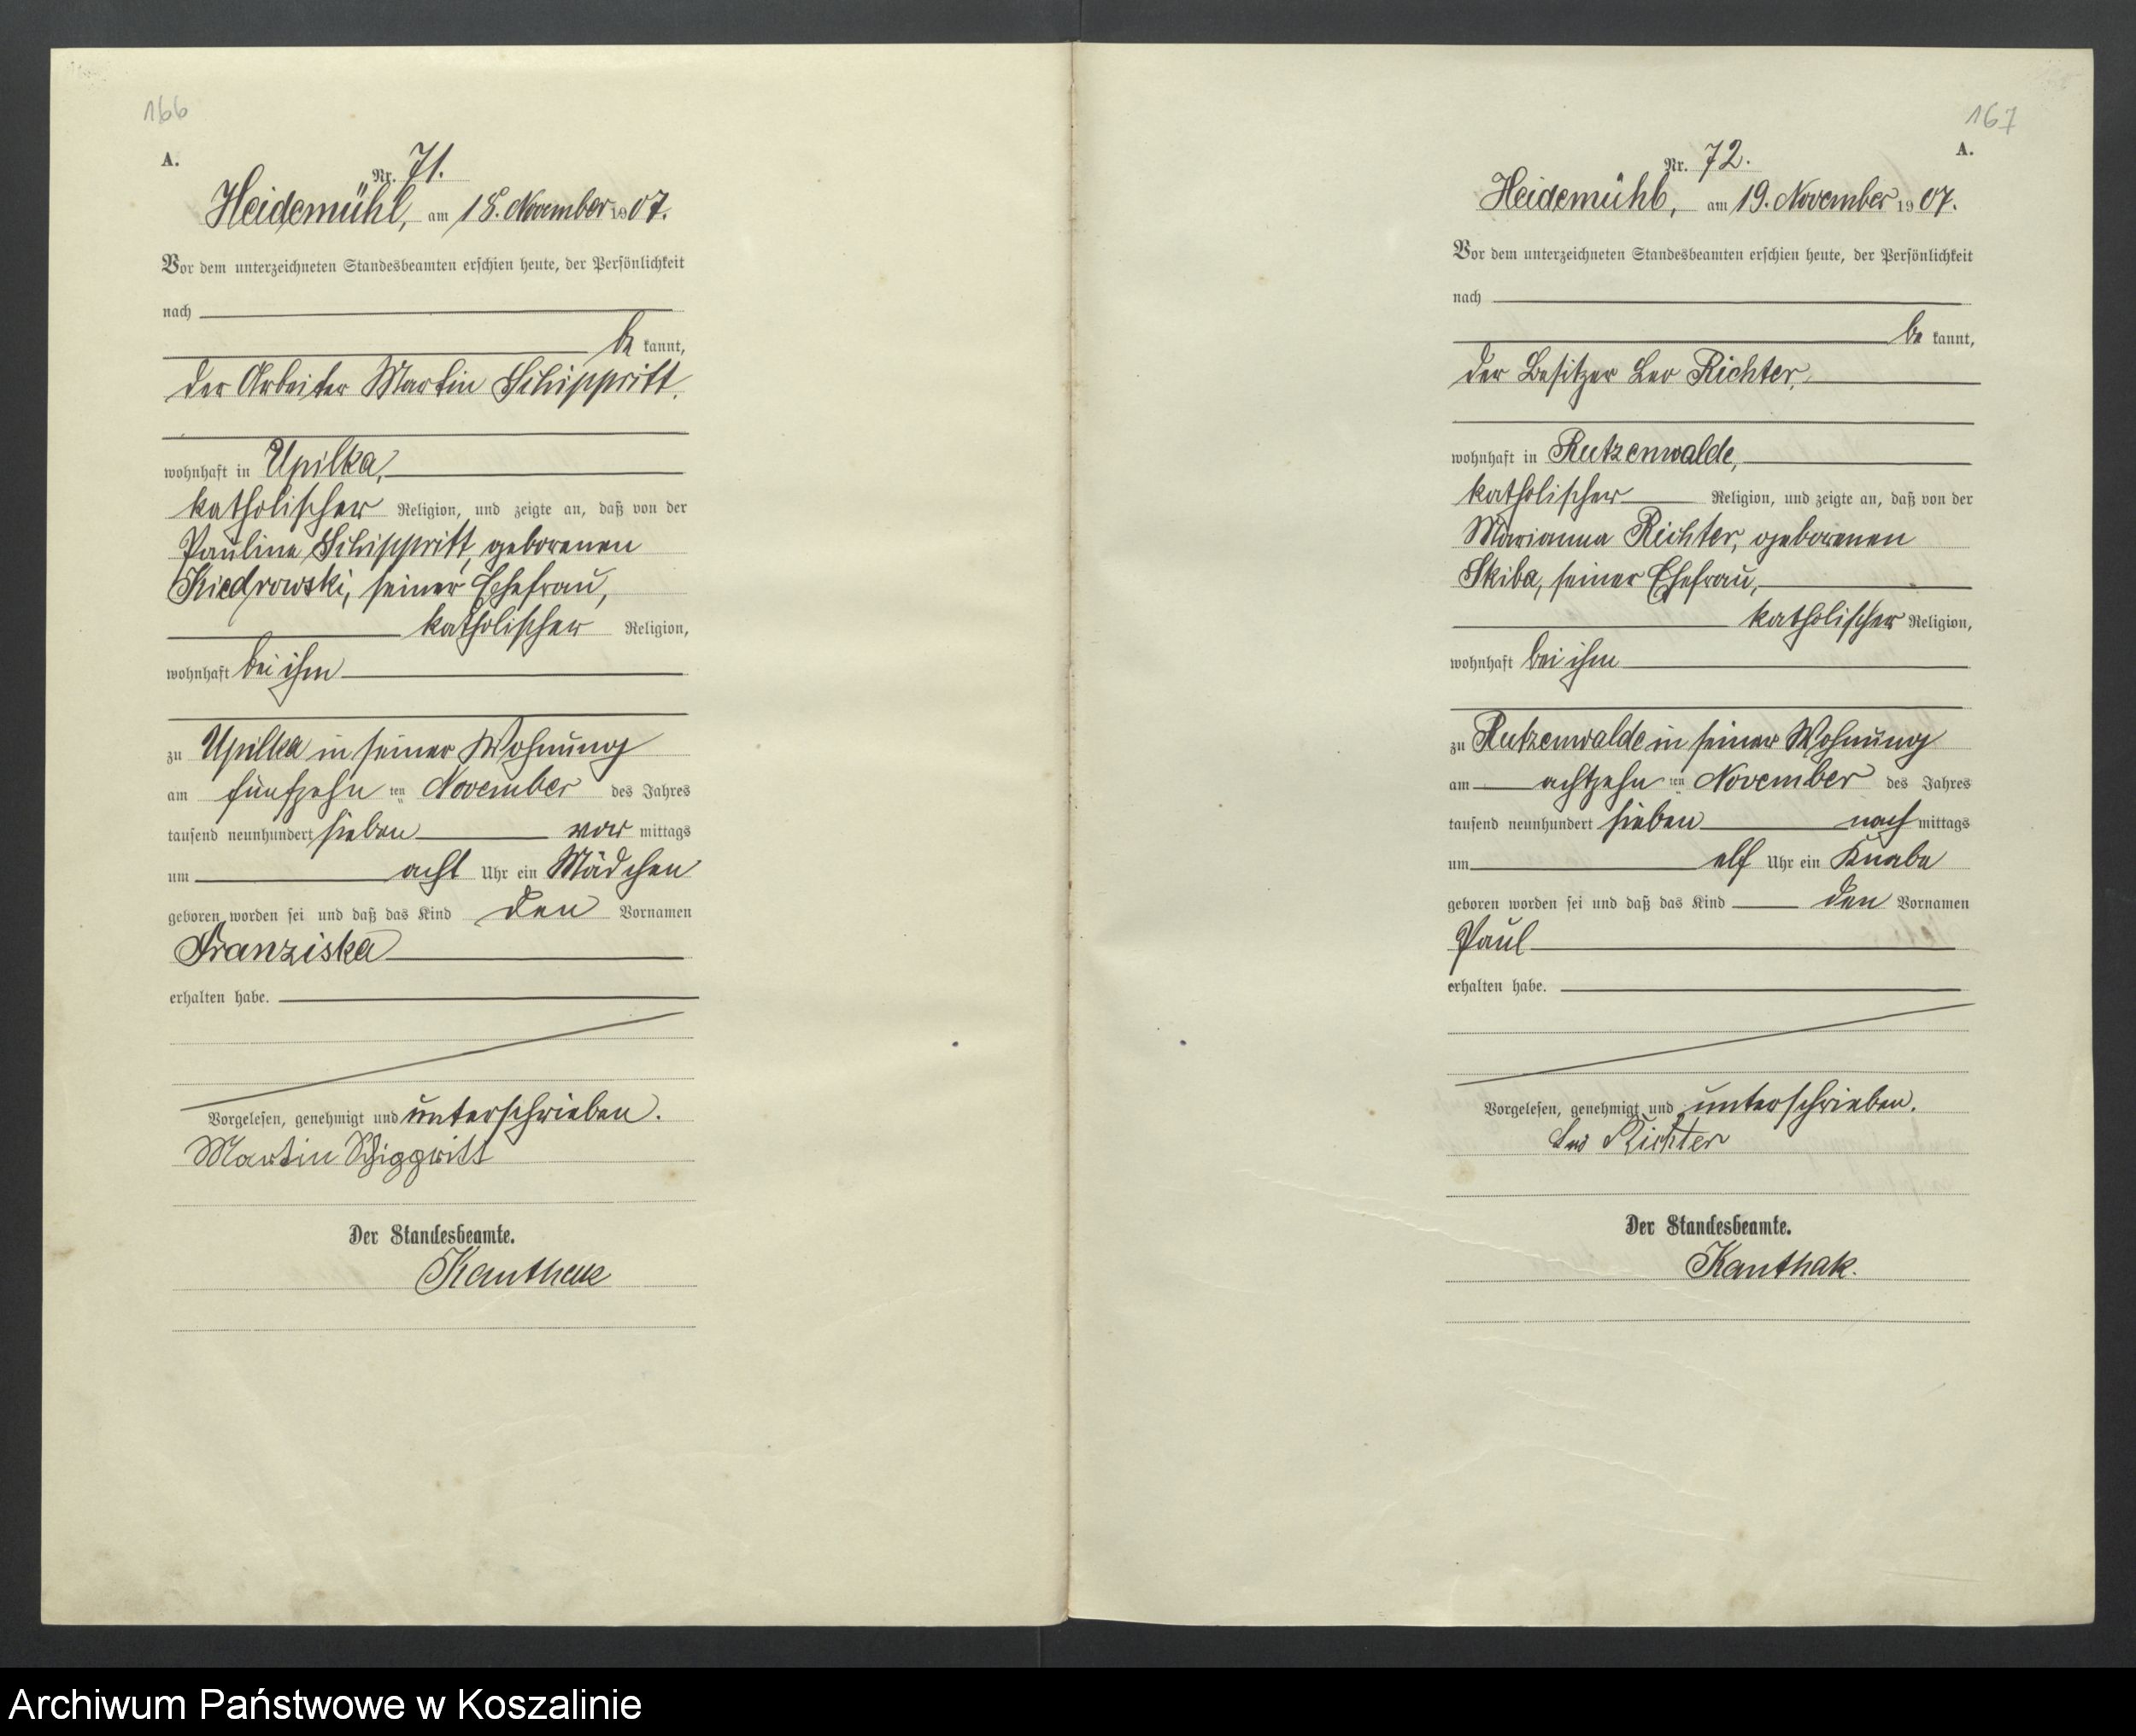 166
A.
Nr. 71.
Heidemühl, am 18. November 1907.
Vor dem unterzeichneten Standesbeamten erschien heute, der Persönlichkeit
nach
be kannt,
der Arbeiter Martin Schippritt,
wohnhaft in Upilka,
katholischer Religion, und zeigte an, daß von der
Pauline Schippritt, geborenen
Kiedrowski, seiner Ehefrau,
katholischer Religion,
wohnhaft bei ihm
zu Upilka in seiner Wohnung
am fünfzehn ten November des Jahres
tausend neunhundert sieben vor mittags
um acht Uhr ein Mädchen
geboren worden sei und daß das Kind den Vornamen
Franziska
erhalten habe.
Vorgelesen, genehmigt und unterschrieben.
Martin Schippritt
Der Standesbeamte.
Kanthak
167
A.
Nr. 72.
Heidemühl, am 19. November 1907.
Vor dem unterzeichneten Standesbeamten erschien heute, der Persönlichkeit
nach
be kannt,
der Besitzer Leo Richter,
wohnhaft in Rutzenwalde,
katholischer Religion, und zeigte an, daß von der
Marianna Richter, geborenen
Skiba, seiner Ehefrau,
katholischer Religion,
wohnhaft bei ihm
zu Rutzenwalde in seiner Wohnung
am achtzehn ten November des Jahres
tausend neunhundert sieben nach mittags
um elf Uhr ein Knabe
geboren worden sei und daß das Kind den Vornamen
Paul
erhalten habe.
Vorgelesen, genehmigt und unterschrieben.
Leo Richter
Der Standesbeamte.
Kanthak.
Archiwum Państwowe w Koszalinie